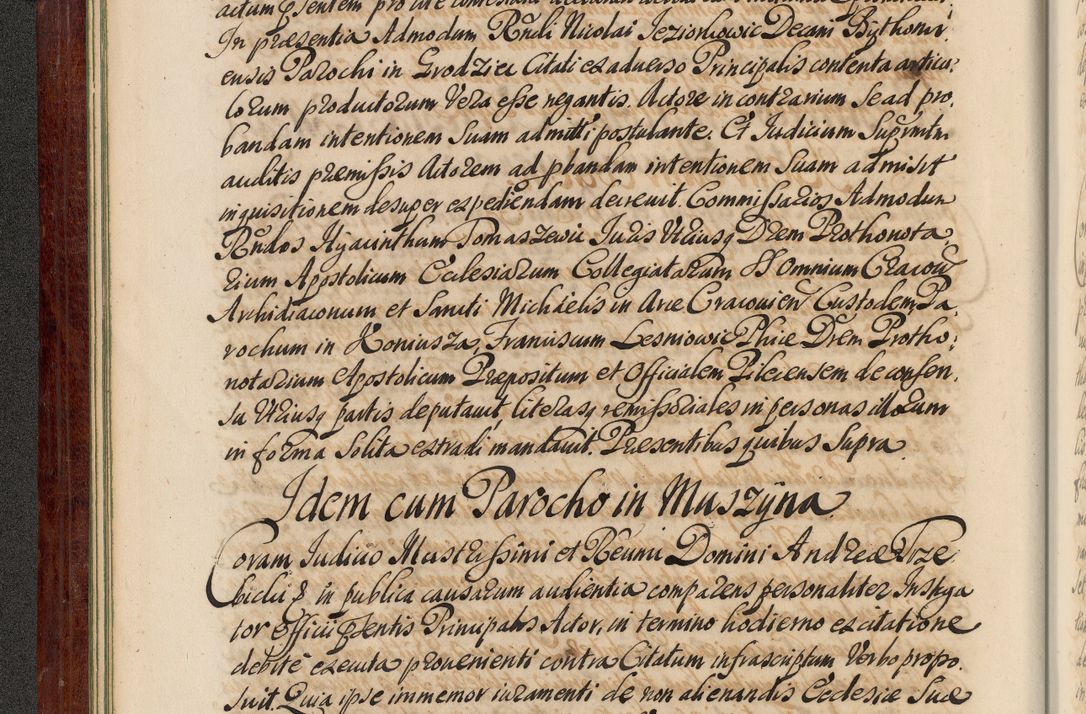 In præsentia Admodum Rñdi Nicolai Jeziorkowic Decani Bythomi-
ensis Parochi in Grodziec Citati ex adverso Principalis contenta articu:
lorum productorum Vera esse negantis. Actore in contrarium se ad pro,
bandam intentionem suam admitti postulante. Et Judicium Supmtu
auditis præmissis Actorem ad pbandam intentionem Suam admisit
inquisitionem desuper expediendam decrevit. Commissarios Admodum
Rñdos Hyacinthum Tomaszewic Juris Utriusq Drem Prothonota
rium Apostolicum Ecclesiarum Collegiatarum SS Omnium Cracoui
Archidiaconum et Sancti Michaelis in Arce Cracouien Custodem, Pa
rochum in Koniusza, Franciscum Lesniowic Phiæ Drem Protho,
notarium Apostolicum Præpositum et Officialem Pilcensem de consen,
su Utriusq partis deputavit, literasq remissoriales in personas illorum
in forma solita extradi mandavit. Præsentibus quibus supra
Idem cum Parocho in Muszÿna
Coram Judicio Illustrissimi et Rẽumi Domini Andreæ Trze
bicki & in publica causarum audientia comparens personaliter Instiga
tor Officii psentis Principalis Actor, in termino hodierno ex citatione
debite executa provenienti contra Citatum infrascriptum Verbo propo,
suit. Quia ipse immemor iuramenti de non alienandis Ecclesiæ Suæ